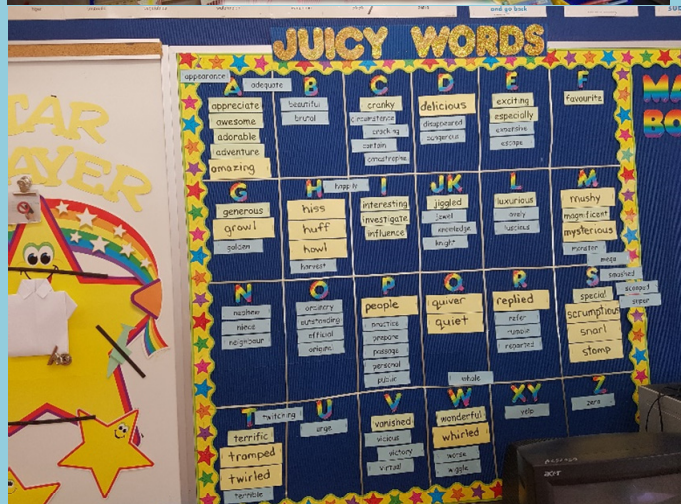 and go back
JUICY WORDS
TAR
AYER
MA
BO
appearance
A
adequate
appreciate
awesome
adorable
adventure
amazing
B
beautiful
brutal
C
cranky
circumstance
cracking
contain
catastrophe
D
delicious
disappeared
dangerous
E
exciting
especially
expensive
escape
F
favourite
G
generous
growl
golden
H
happily
hiss
huff
howl
harvest
I
interesting
investigate
influence
JK
jiggled
jewel
knowledge
knight
L
luxurious
lovely
luscious
M
mushy
magnificent
mysterious
monster
mega
N
nephew
niece
neighbour
O
ordinary
outstanding
official
original
P
people
practice
prepare
passage
personal
public
Q
quiver
quiet
R
replied
refer
rumble
reported
S
smashed
special
scrumptious
snarl
stomp
scooped
super
T
twitching
terrific
tramped
twirled
terrible
U
urge
V
vanished
vicious
victory
virtual
whole
W
wonderful
whirled
worse
wiggle
XY
yelp
Z
zero
acer